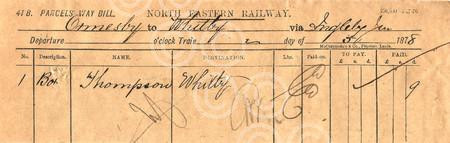 47B. PARCELS WAY BILL. NORTH EASTERN RAILWAY.
Ormesby to Whitby via Ingleby Jun
Departure O'clock Train day of 1878
No. Description. NAME. DESTINATION. Lbs. Paid on. TO PAY. PAID.
£ s. d. £ s. d.
1 Box Thompson Whitby 9